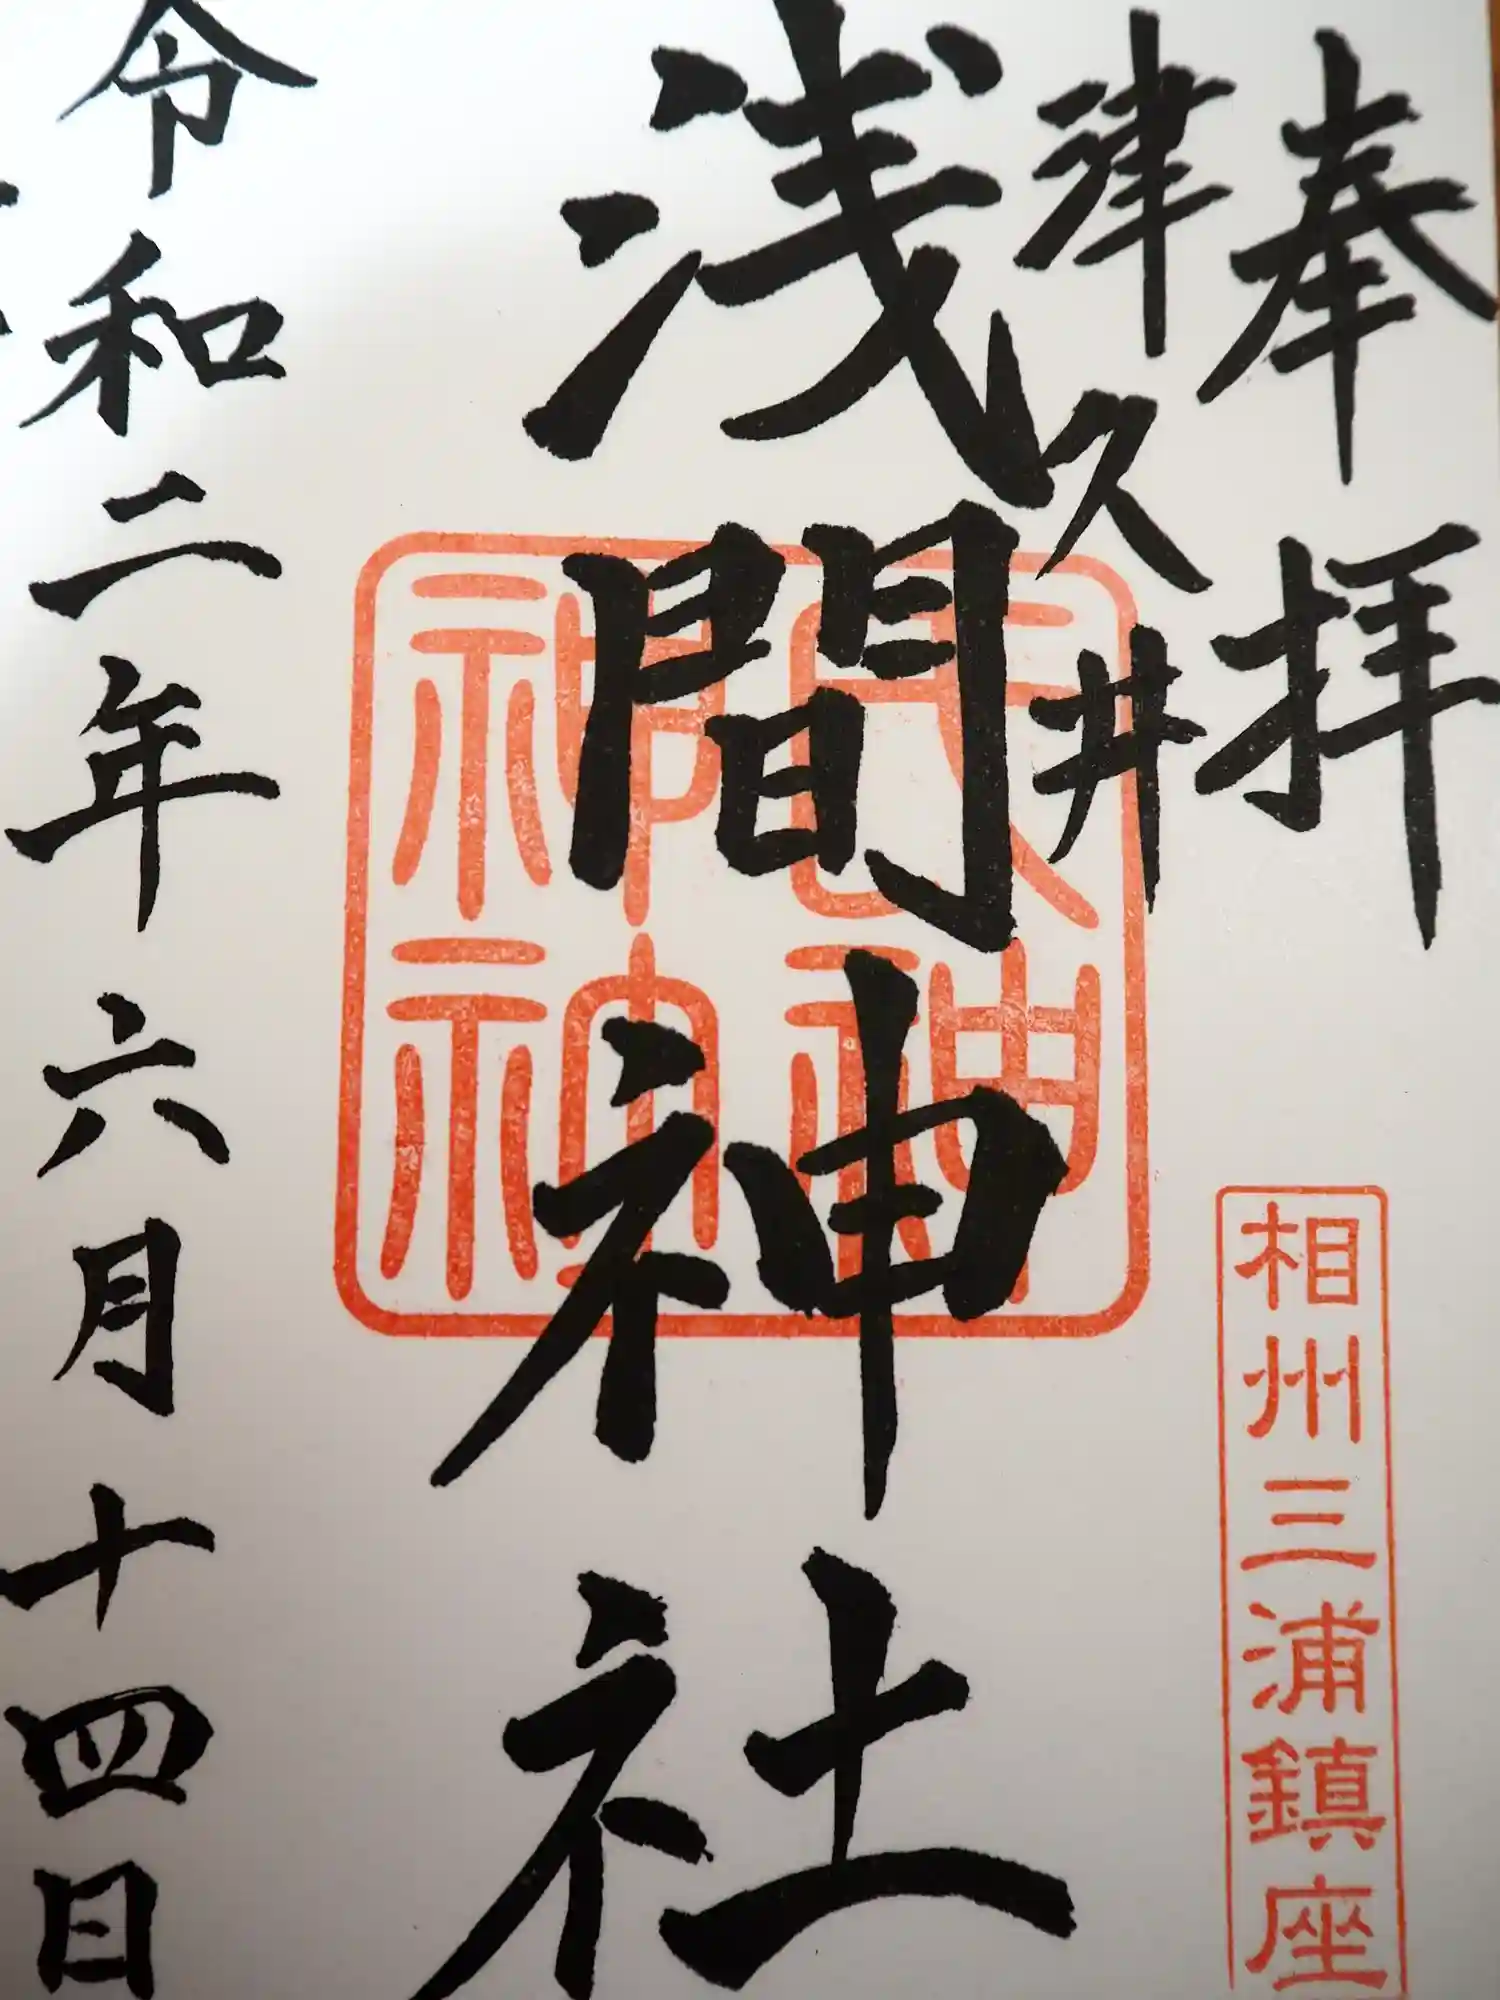 奉拝
相州三浦鎮座
津久井
浅間神社
令和二年六月十四日